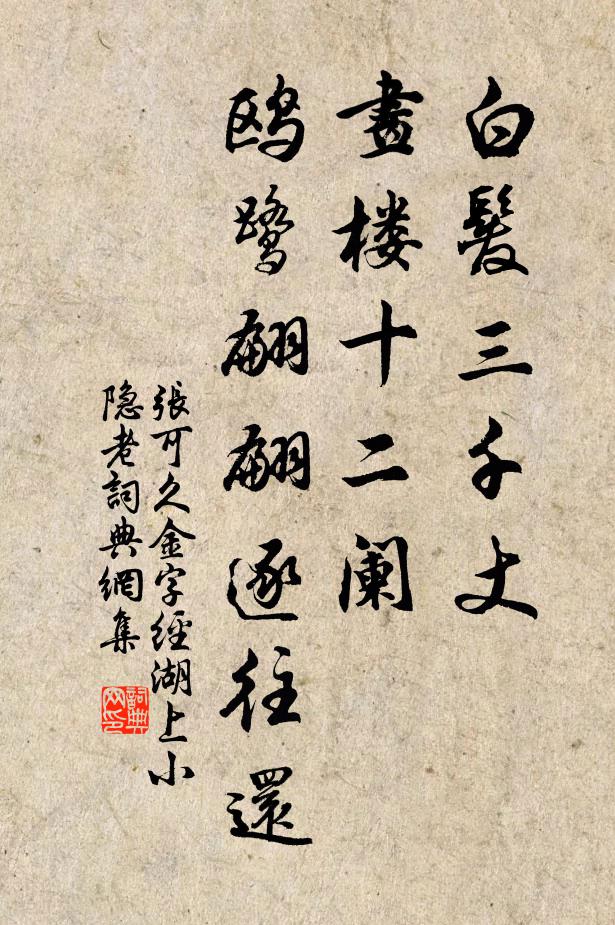 白髮三千丈
畫楼十二阑
鸥鹭翩翩逐往還
張可久金字經湖上小
隐老詞典網集
詞典网印